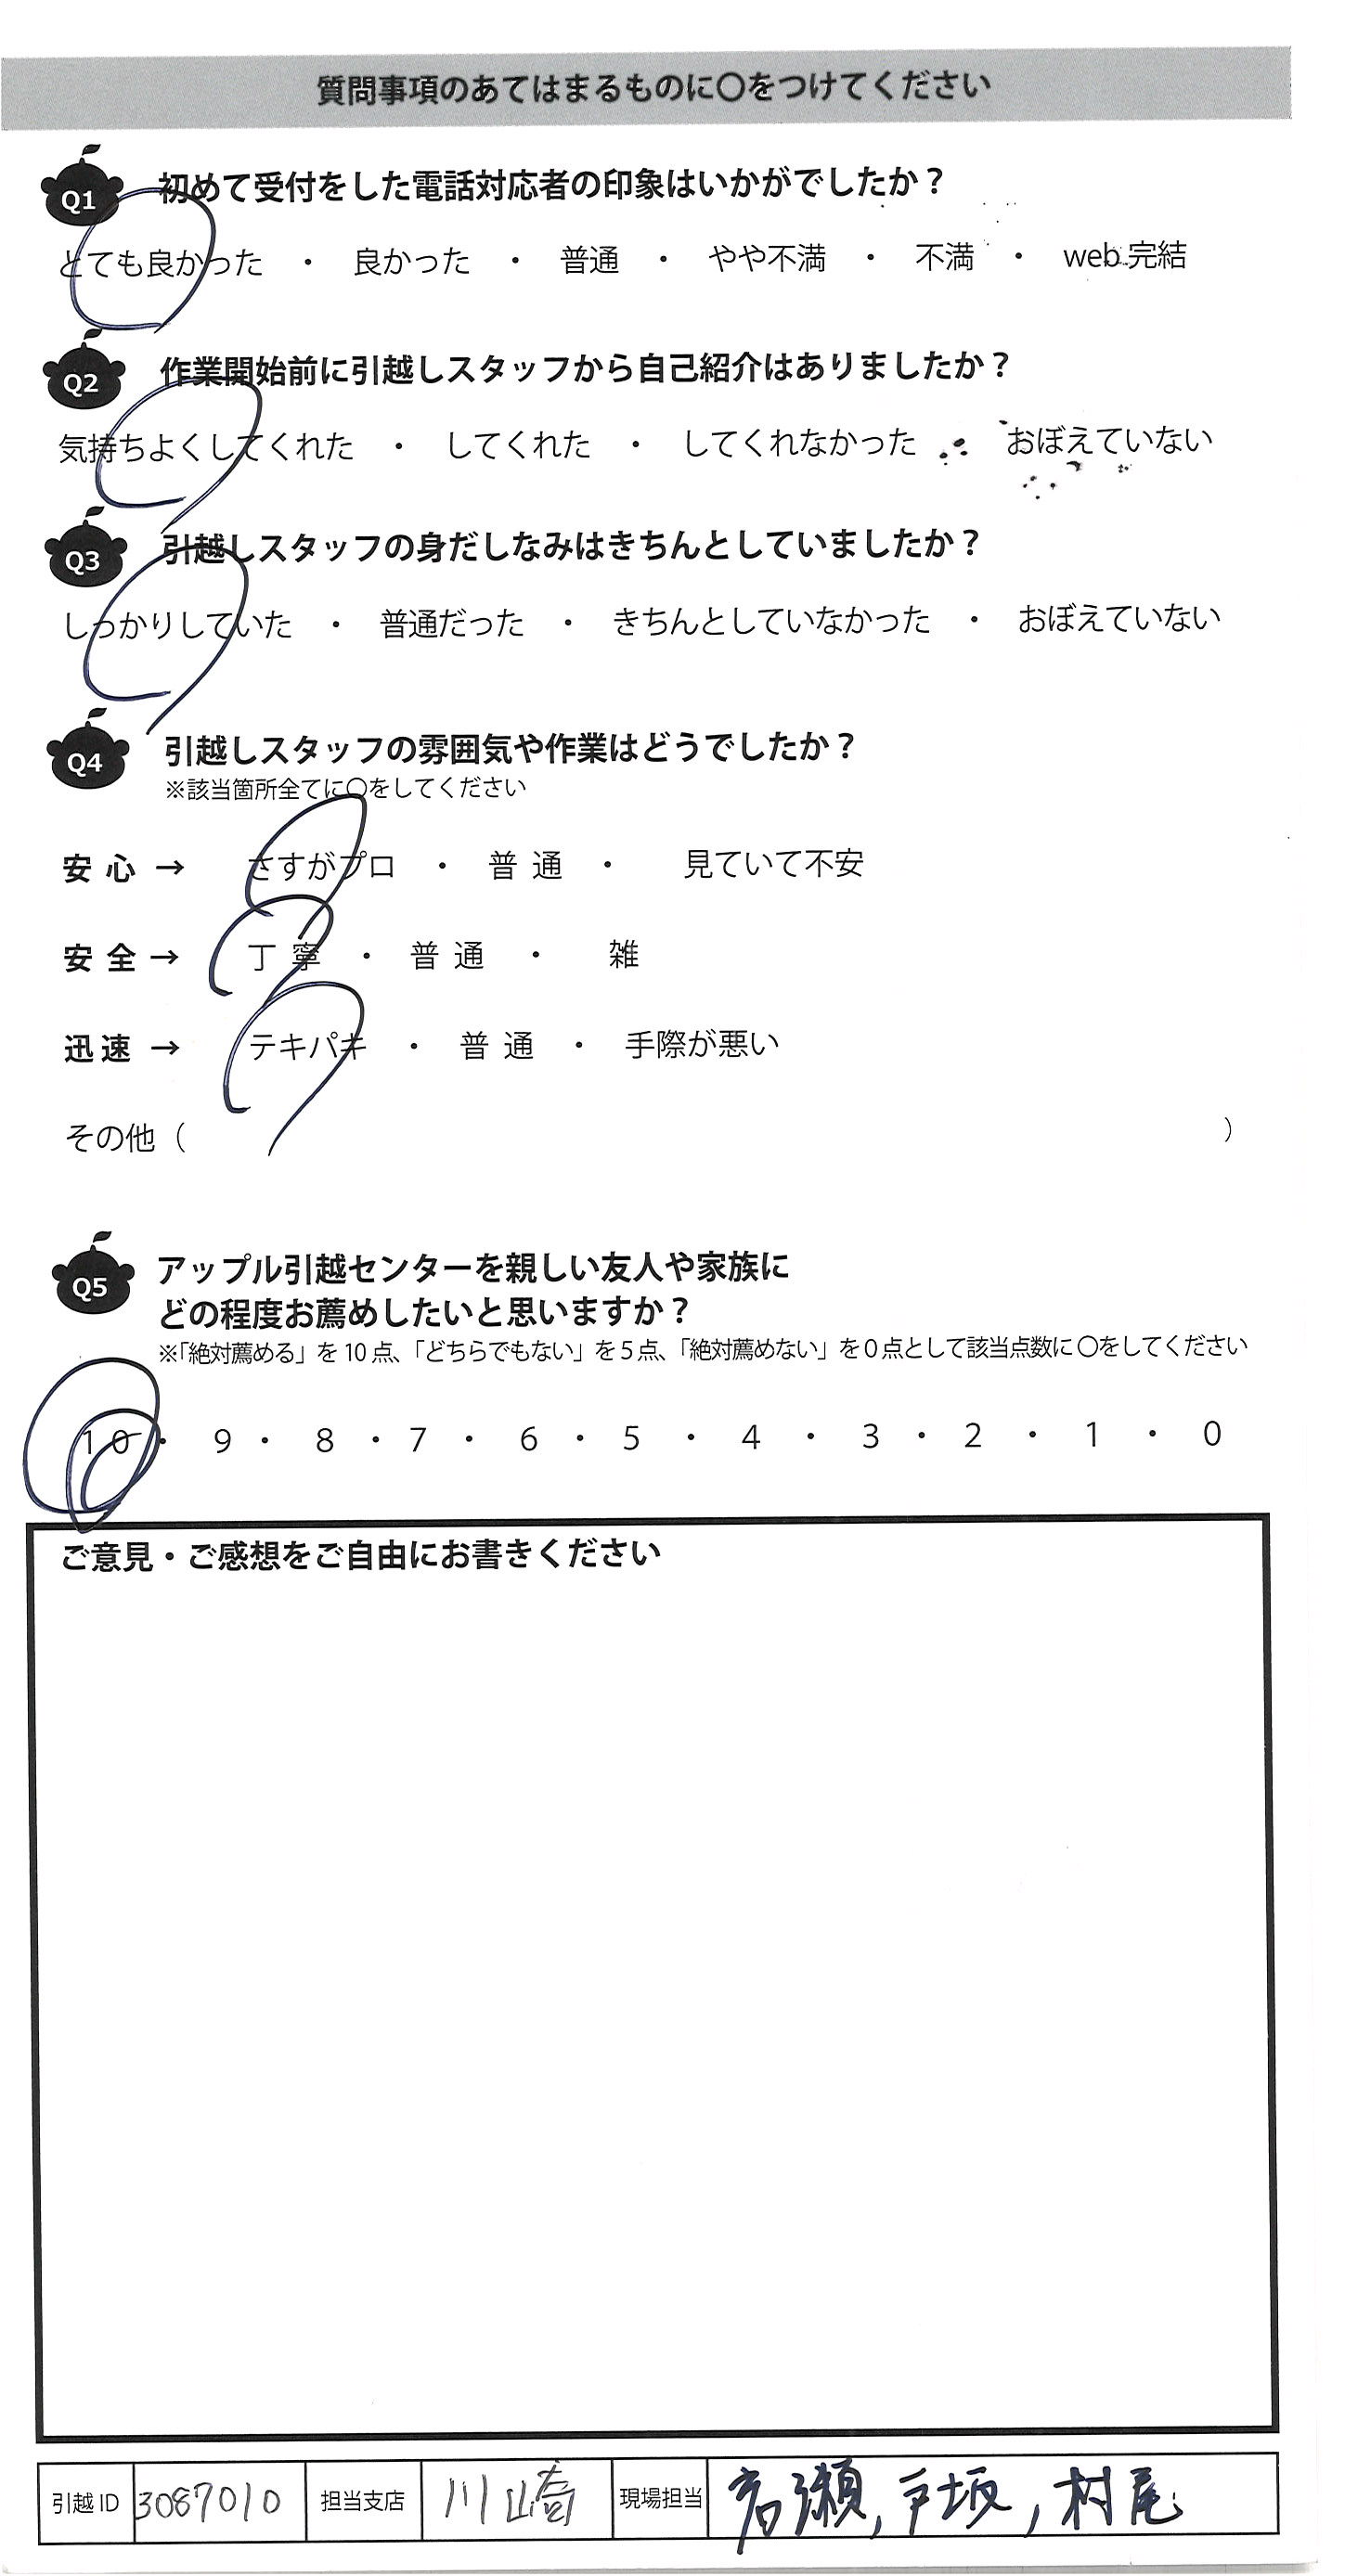 質問事項のあてはまるものに〇をつけてください
Q1 初めて受付をした電話対応者の印象はいかがでしたか？
とても良かった ・ 良かった ・ 普通 ・ やや不満 ・ 不満 ・ web完結
Q2 作業開始前に引越しスタッフから自己紹介はありましたか？
気持ちよくしてくれた ・ してくれた ・ してくれなかった ・ おぼえていない
Q3 引越しスタッフの身だしなみはきちんとしていましたか？
しっかりしていた ・ 普通だった ・ きちんとしていなかった ・ おぼえていない
Q4 引越しスタッフの雰囲気や作業はどうでしたか？
※該当箇所全てに〇をしてください
安心 → さすがプロ ・ 普通 ・ 見ていて不安
安全 → 丁寧 ・ 普通 ・ 雑
迅速 → テキパキ ・ 普通 ・ 手際が悪い
その他（ ）
Q5 アップル引越センターを親しい友人や家族に
どの程度お薦めしたいと思いますか？
※「絶対薦める」を10点、「どちらでもない」を5点、「絶対薦めない」を0点として該当点数に〇をしてください
10 ・ 9 ・ 8 ・ 7 ・ 6 ・ 5 ・ 4 ・ 3 ・ 2 ・ 1 ・ 0
ご意見・ご感想をご自由にお書きください
引越ID 3087010 担当支店 川崎 現場担当 高瀬, 戸坂, 村尾